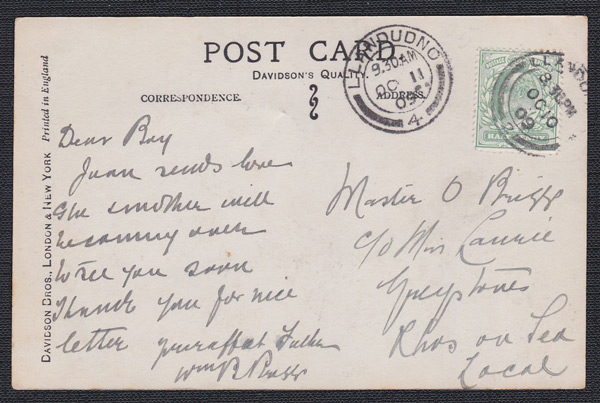 POST CARD
DAVIDSON'S QUALITY.
CORRESPONDENCE.
ADDRESS.
Printed in England
DAVIDSON BROS., LONDON & NEW YORK
LLANDUDNO
9.30 AM
OC 11
09
4
LLANDUD
8.30 PM
OC 10
09
HALF
Dear Boy
Juan sends love
She & mother will
be coming over
to see you soon
Thank you for nice
letter your affect Father
Wm B Briggs
Master O Briggs
c/o Miss Laurie
Greystones
Rhos on Sea
Local